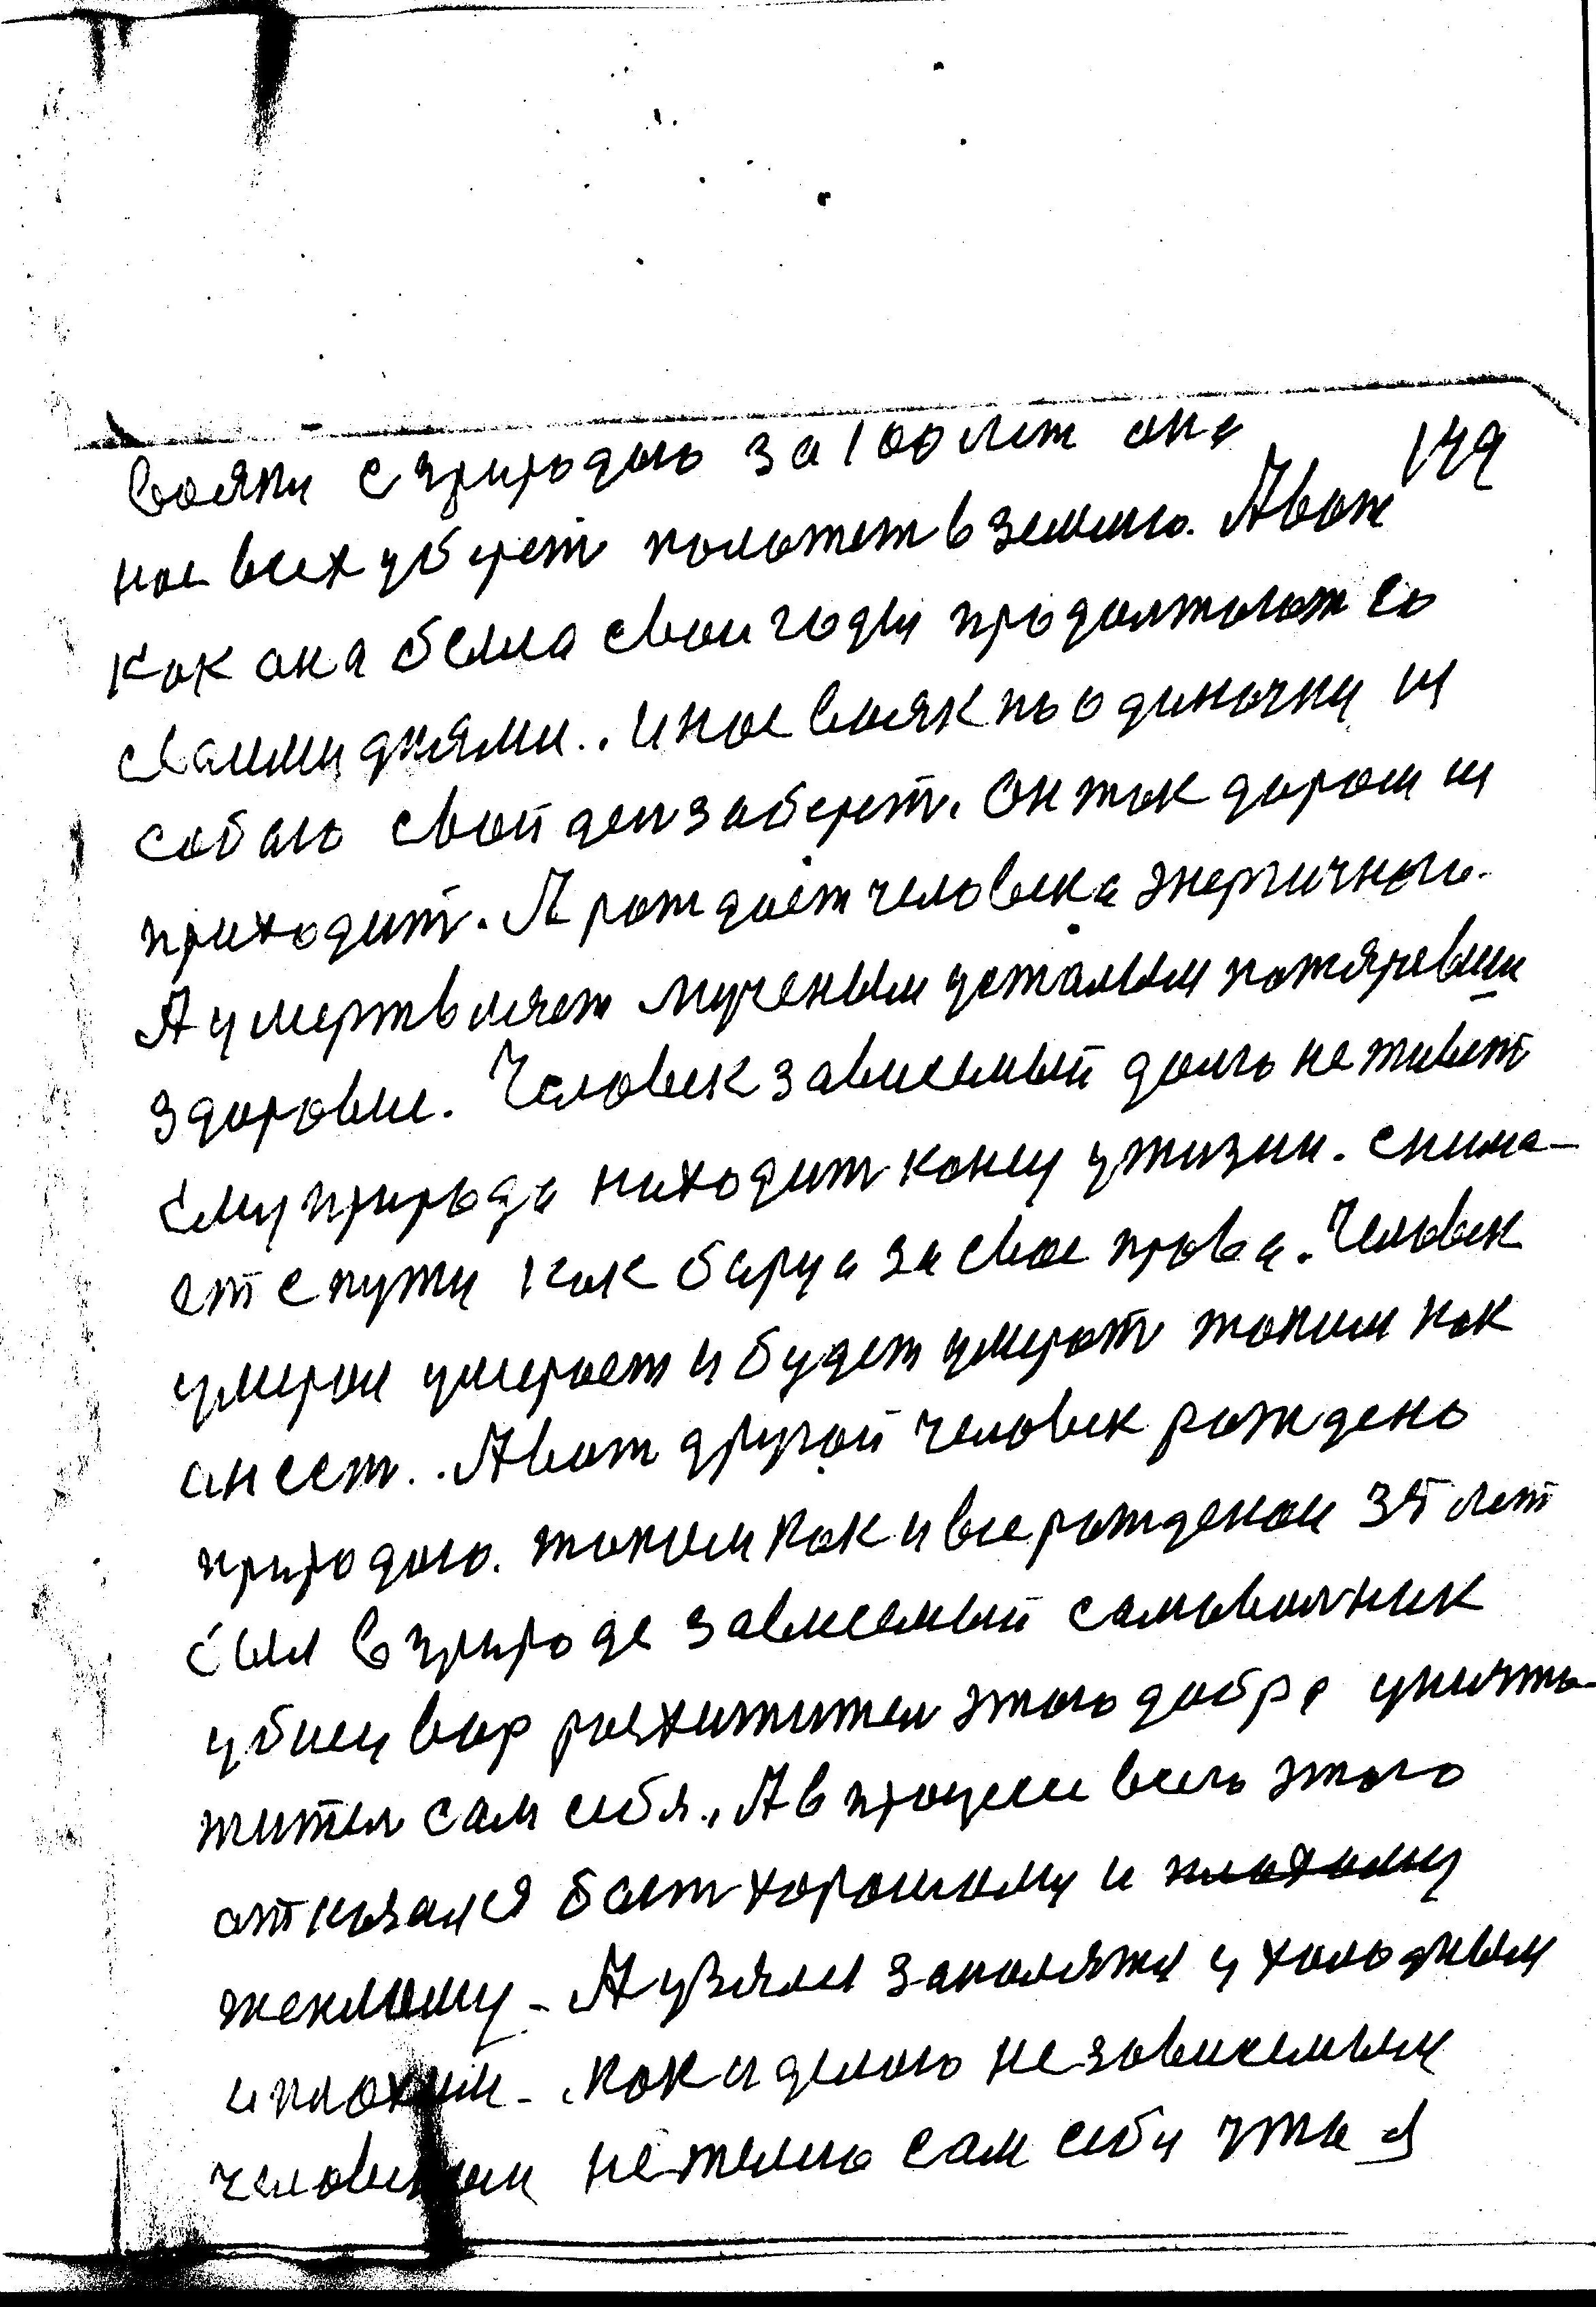 вояки с природою за 100 лет она 149
нас всех уберет положет в землю. А вот
как она была свои годы продолжают со
своими днями.. и нас вояк по одиночки ш
собою свой ден заберет. Он так даром ш
приходит. А рождает человека энергичнаго.
А умертвляет мученым усталым потярявши
здоровие. Человек зависемый долго не живет
ему природа находит конец у жизни. снима-
ет с пути как барца за свое права. Человек
умирал умирает и будет умерать таким как
он ест.. А вот другой человек рождено
природою. таким как и все рожденаи 35 лет
был в природе зависемый самовольник
убиец вор расхититель этого добра уничто-
жител сам себя., А в процесе всего этого
отказался бает хорошому и
теплому - А узяли заполяжи у холодным
и плохим -. как и делаю независемым
человеком не желею сам себя что я